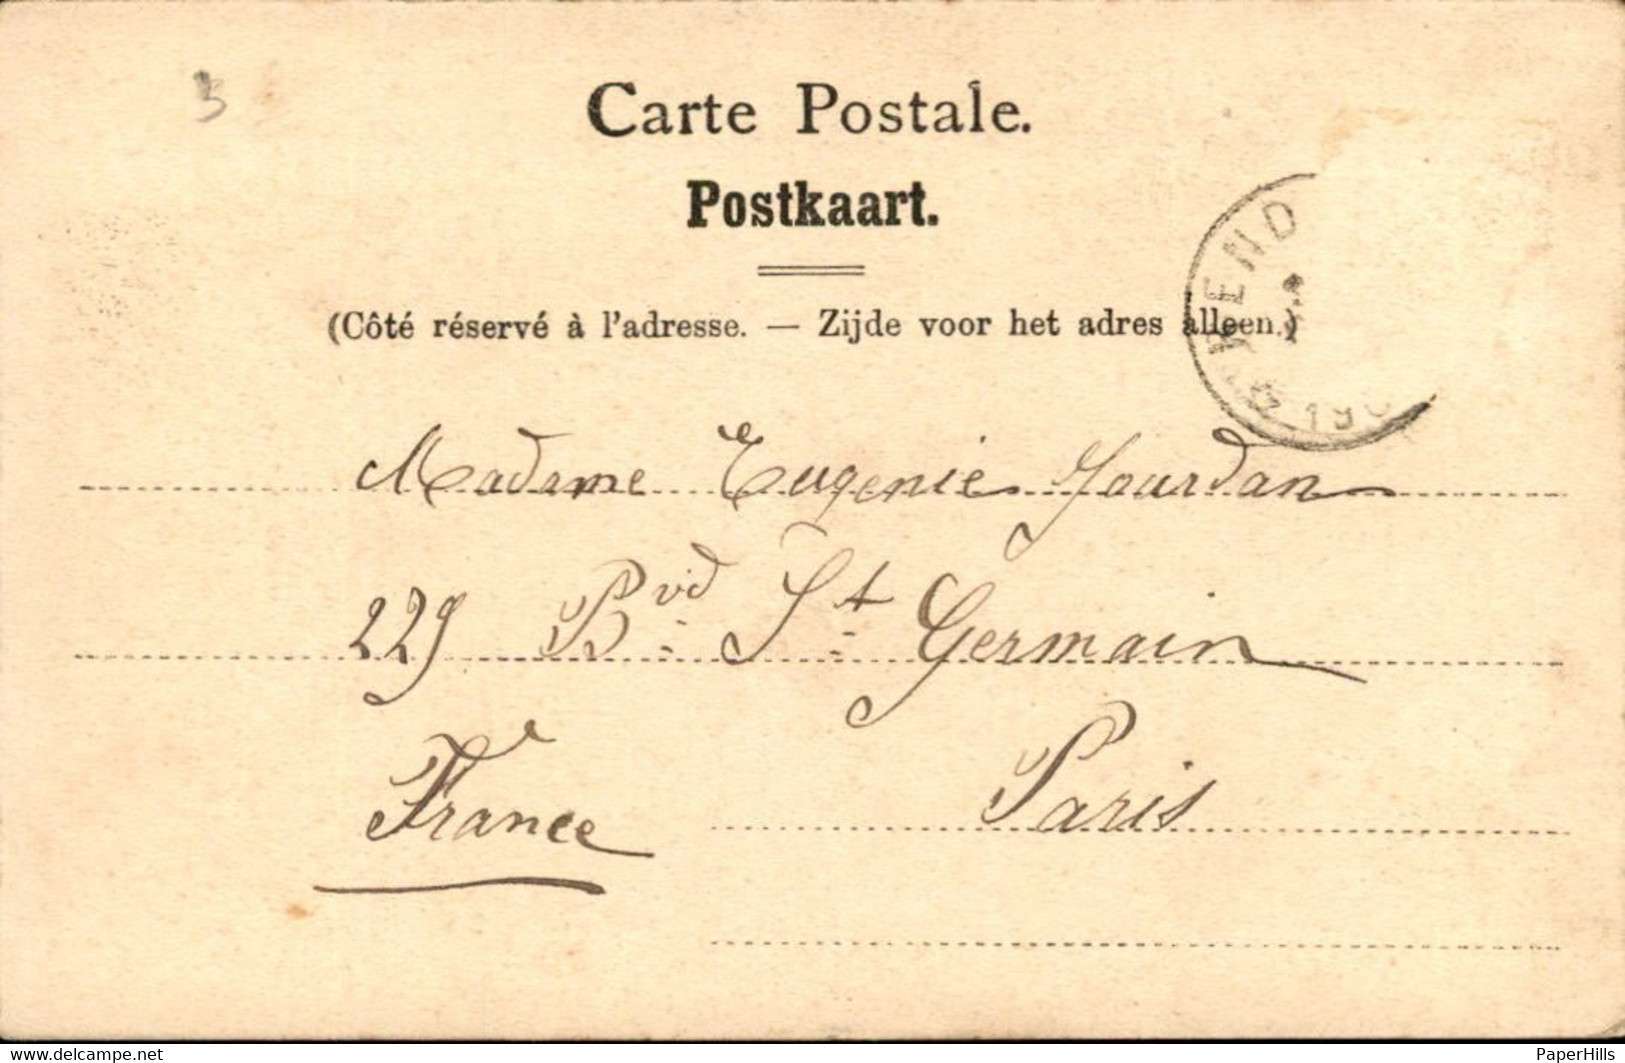 3
Carte Postale.
Postkaart.
(Côté réservé à l'adresse. — Zijde voor het adres alleen.)
Madame Eugenie Jourdan
229 Bvd St Germain
France Paris
PaperHills